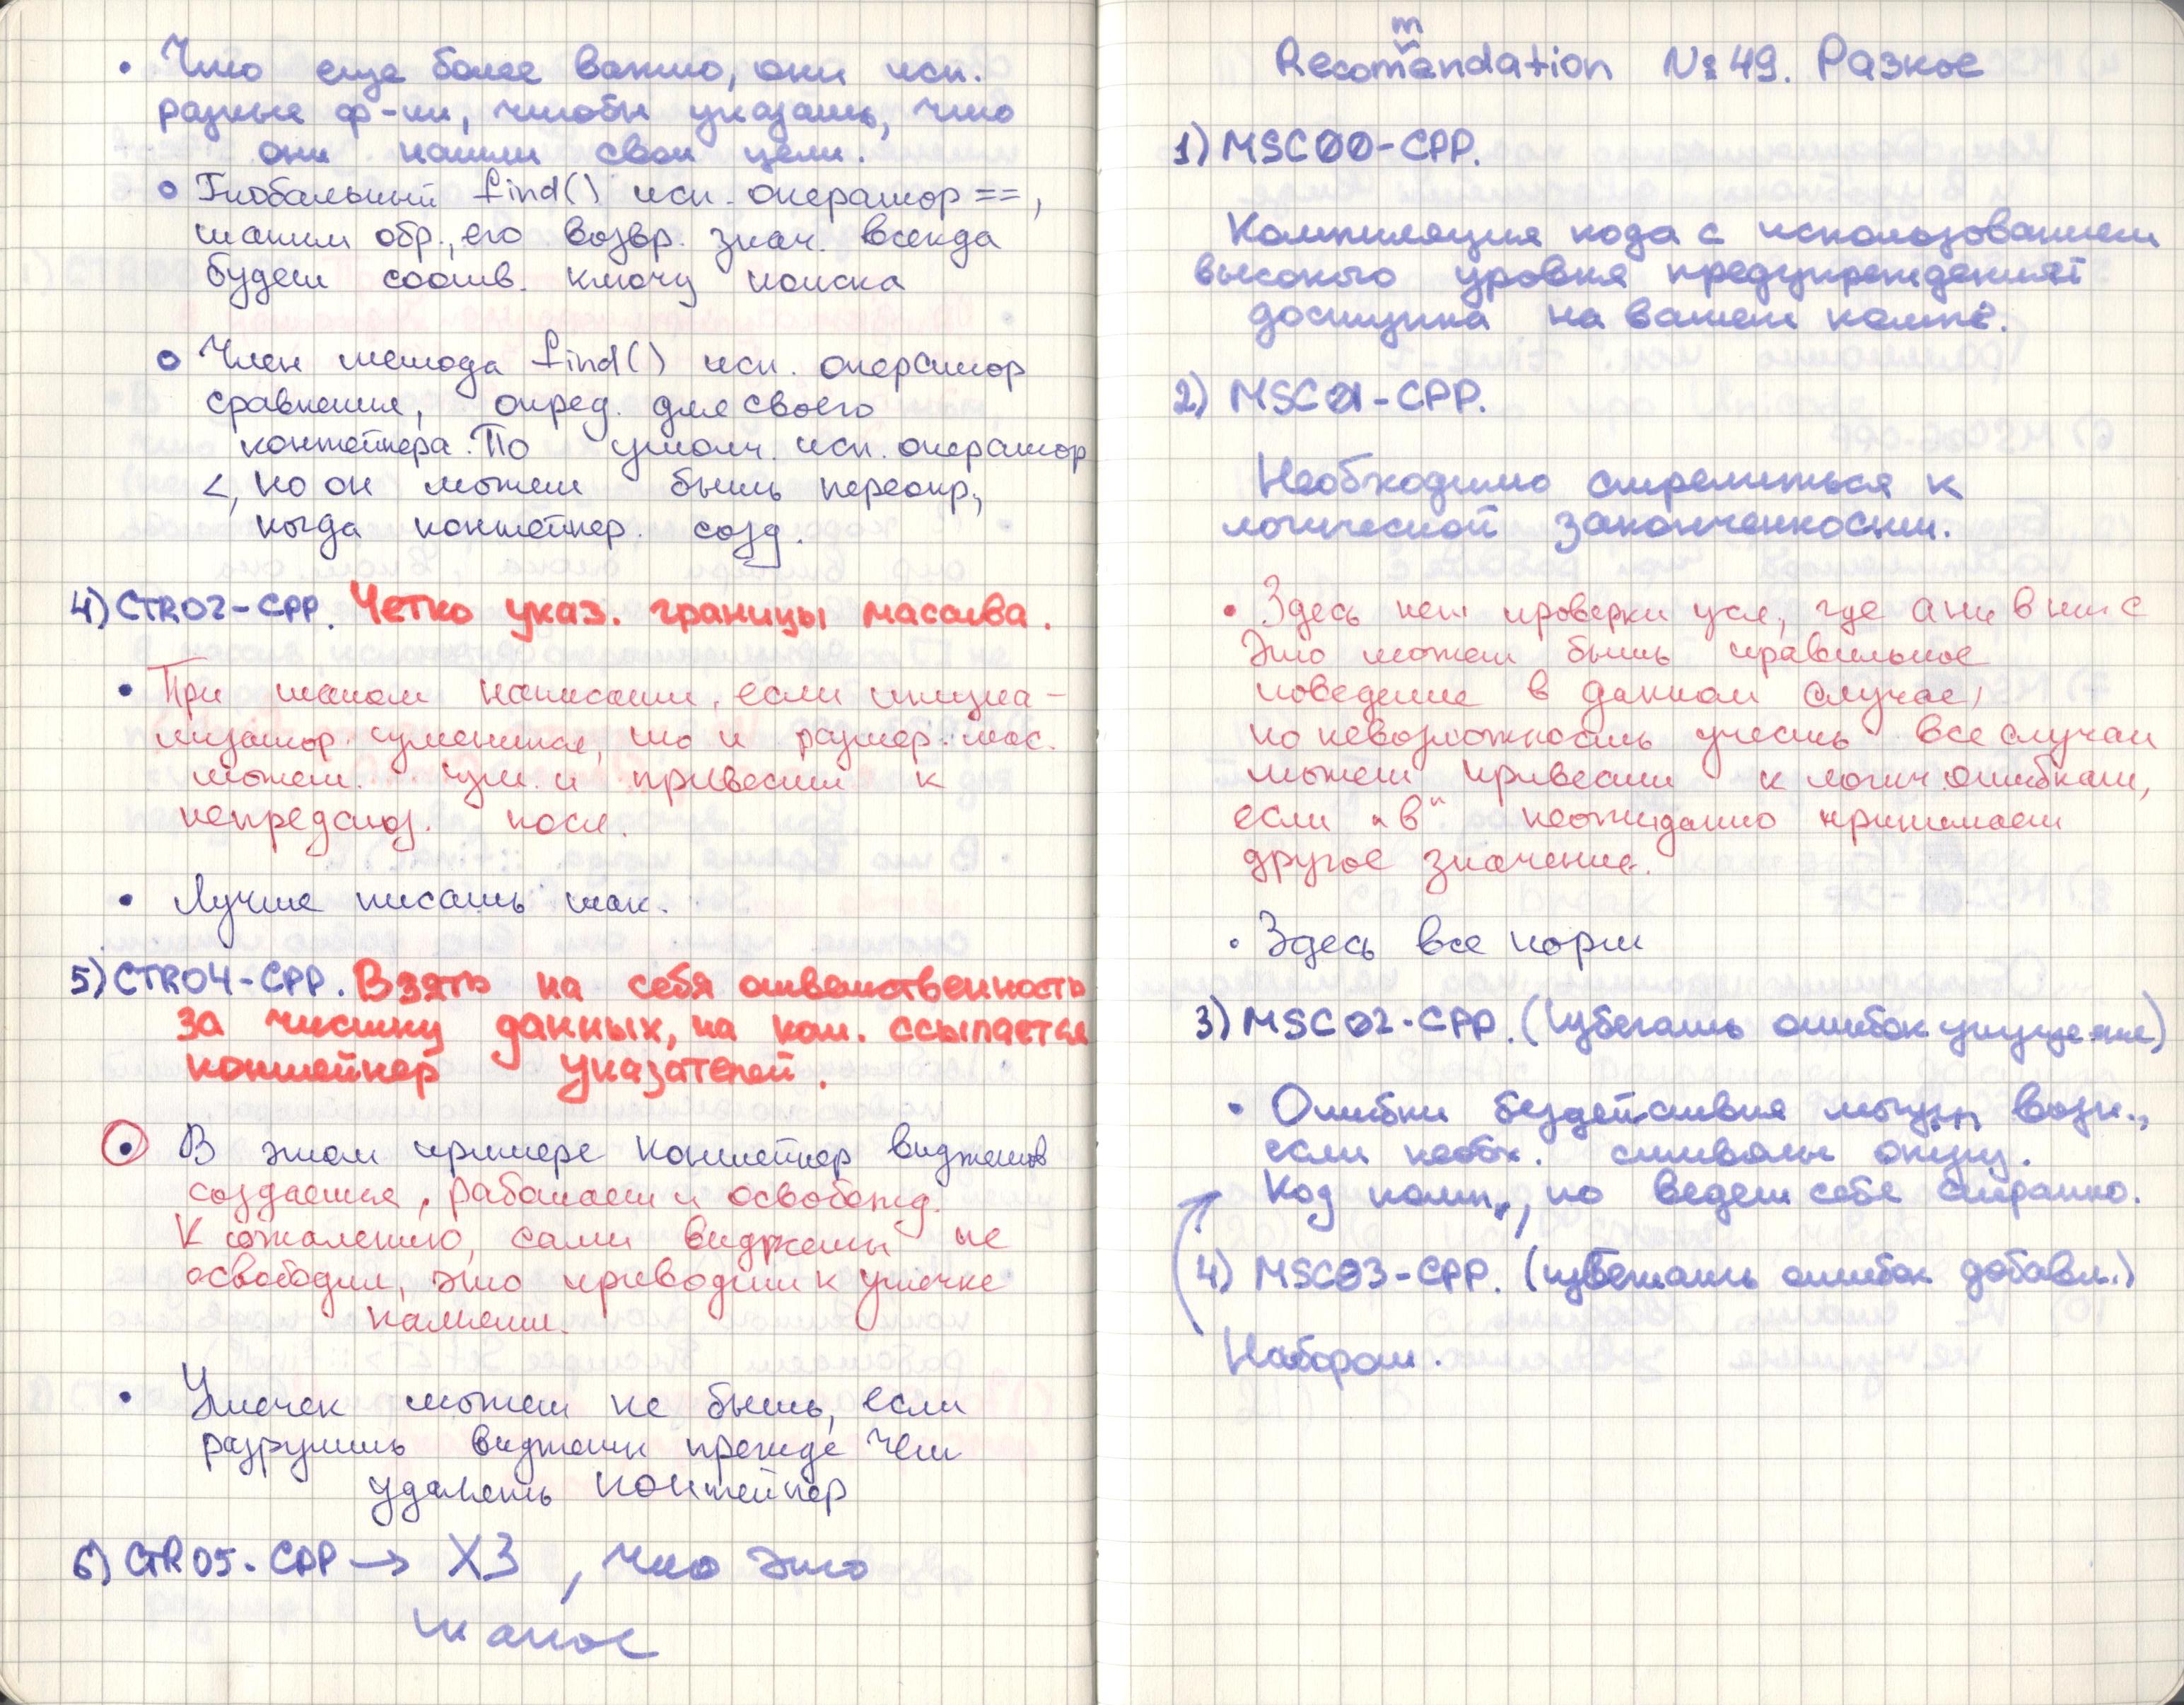 • Что еще более важно, они исп.
разные ф-ии, чтобы указать, что
они нашли свои цели.
○ Глобальный find() исп. оператор ==,
таким обр., его возвр. знач. всегда
будет соотв. ключу поиска
○ Член метода find() исп. оператор
сравнения, опред. для своего
контейнера. По умолч. исп. оператор
<, но он может быть переопр.,
когда контейнер. созд.
4) CTR02-CPP. Четко указ. границы массива.
• При таком написании, если инициа-
лизатор уменьшится, то и размер мас.
может ум. и привести к
непредсказ. посл.
• Лучше писать так.
5) CTR04-CPP. Взять на себя ответственность
за чистку данных, на кот. ссылается
контейнер указателей.
• В этом примере контейнер виджетов
создается, работает и освобожд.
К сожалению, сами виджеты не
освободил, это приводит к утечке
памяти.
• Утечек может не быть, если
разрушить виджеты прежде чем
удалять контейнер
6) CTR05-CPP → ХЗ, что это
такое
Recommendation №49. Разное
1) MSC00-CPP.
Компиляция кода с использованием
высокого уровня предупреждений
доступна на вашем комп.
2) MSC01-CPP.
Необходимо стремиться к
логической законченности.
• Здесь нет проверки усл, где a ни b ни c
Это может быть правильное
поведение в данном случае,
но невозможность учесть все случаи
может привести к логич. ошибкам,
если „в" неожиданно принимает
другое значение.
• Здесь все норм
3) MSC02-CPP. (Избегать ошибок упущения)
• Ошибки бездействия могут возн.,
если необх. символы опущ.
Код комп., но ведет себя странно.
4) MSC03-CPP. (избегать ошибок добавл.)
Наборот.